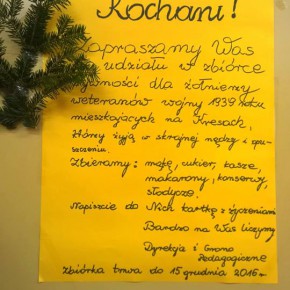 Kochani!
Zapraszamy Was
do udziału w zbiórce
żywności dla żołnierzy
weteranów wojny 1939 roku
mieszkających na Kresach,
którzy żyją w skrajnej nędzy i opu-
szczeniu.
Zbieramy: mąkę, cukier, kasze,
makarony, konserwy,
słodycze.
Napiszcie do Nich kartkę z życzeniami
Bardzo na Was liczymy
Dyrekcja i Grono
Pedagogiczne
Zbiórka trwa do 15 grudnia 2016 r.